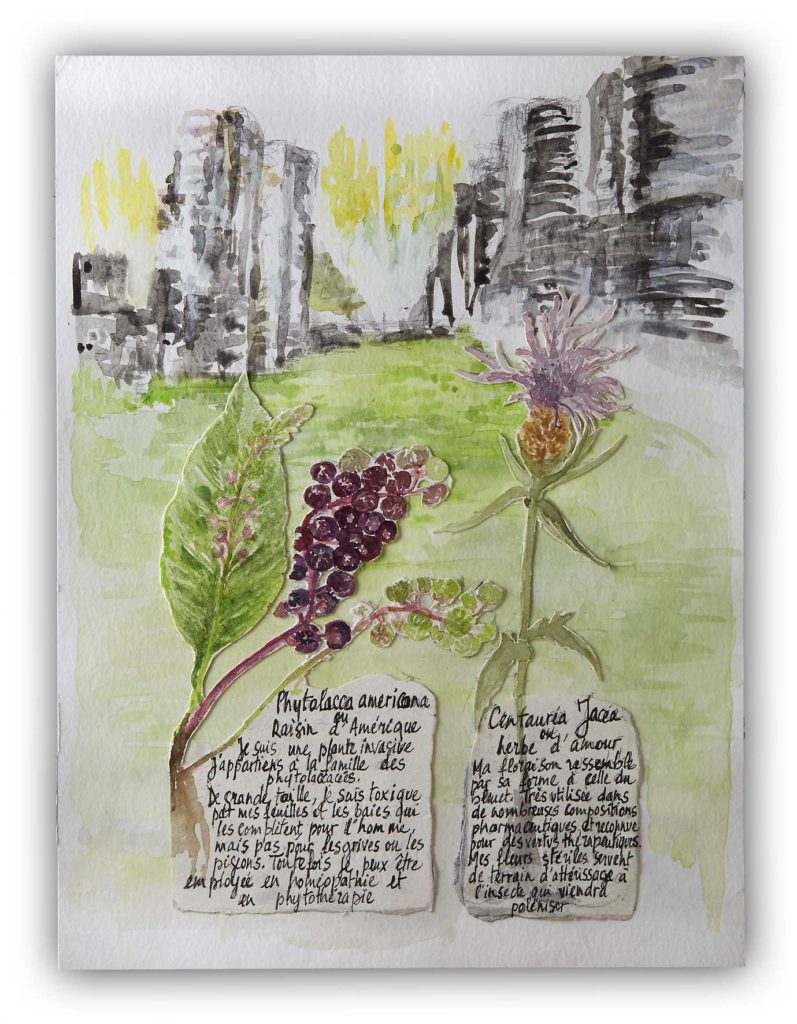 Phytolacca americana
ou
Raisin d'Amérique
Je suis une plante invasive
J'appartiens à la famille des
phytolaccacées.
De grande taille, je suis toxique
par mes feuilles et les baies qui
les complètent pour l'homme,
mais pas pour les grives ou les
pigeons. Toutefois je peux être
employée en homéopathie et
en phytothérapie
Centauréa Jacea
ou
herbe d'amour
Ma floraison ressemble
par sa forme à celle du
bleuet. Très utilisée dans
de nombreuses compositions
pharmaceutiques et reconnue
pour des vertus thérapeutiques.
Mes fleurs stériles servent
de terrain d'attérissage à
l'insecte qui viendra
poléniser